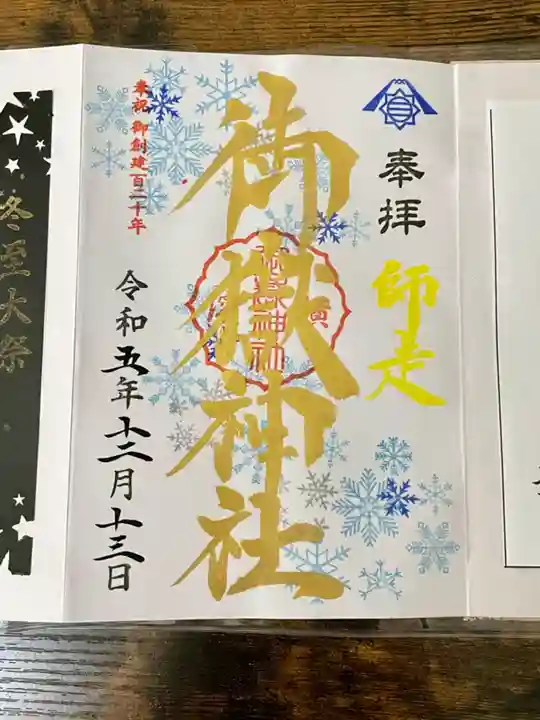 奉拝
師走
御嶽神社
奉祝 御創建百二十年
令和五年十二月十三日
冬至大祭